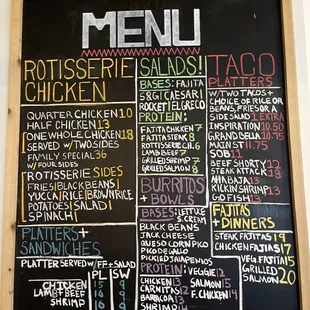 MENU
ROTISSERIE
CHICKEN
QUARTER CHICKEN 10
HALF CHICKEN 13
ONE WHOLE CHICKEN 18
SERVED W/ TWO SIDES
FAMILY SPECIAL 36
W/ FOUR SIDES
ROTISSERIE SIDES
FRIES | BLACK BEANS
YUCCA | RICE | BROWN RICE
POTATOES | SALAD
SPINACH
PLATTERS +
SANDWICHES
PLATTER SERVED W/ FF + SALAD
PL SW
CHICKEN 15 9
LAMB + BEEF 16 9
SHRIMP
SALADS!
BASES: FAJITA
SRGI CAESAR
ROCKET | EL GRECO
PROTEIN:
FAJITA CHICKEN 7
FAJITA STEAK 8
ROTISSERIE CH. 6
LAMB BEEF 7
GRILLED SHRIMP 7
GRILLED SALMON 8
BURRITOS
+ BOWLS
BASES: LETTUCE
SCREAM
BLACK BEANS
JACK CHEESE
QUESO CORN PICO
PICO DE GALLO
PICKLED JALAPENOS
PROTEIN: VEGGIE 12
CHICKEN 13 SALMON 15
CARNITAS 12 F. CHICKEN 14
BARBACOA 13
SHRIMP 14
TACO
PLATTERS
W/ TWO TACOS +
CHOICE OF RICE OR
BEANS, FRIES OR A
SIDE SALAD 1 EXTRA
INSPIRATION 10.50
GRAND DELA 10.75
MAIN ST 11.75
SOB 11
BEEF SHORTY 12
STEAK ATTACK 13
AHI TUNA 13
KICKIN SHRIMP 13
GO FISH 13
FAJITAS
+ DINNERS
STEAK FAJITAS 19
CHICKEN FAJITAS 17
VEG. FAJITA 15
GRILLED
SALMON 20